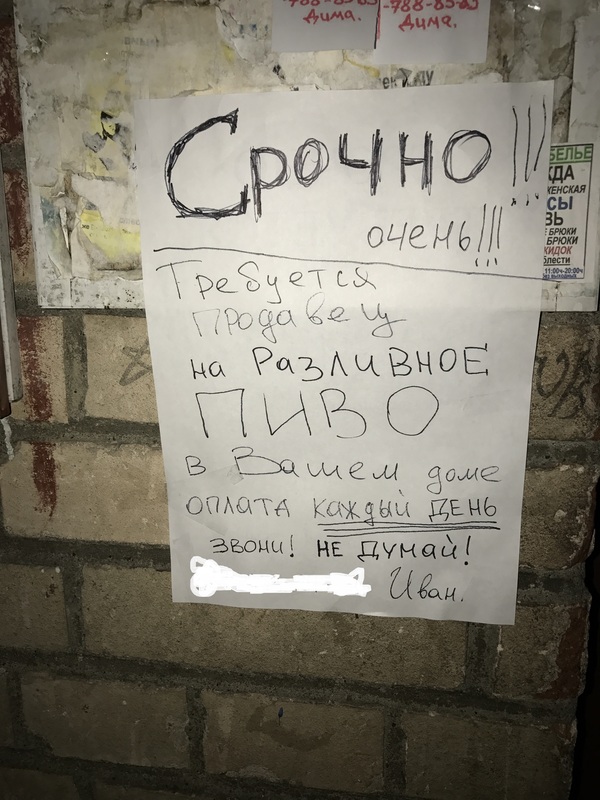 -788-85-85
Дима.
-788-85-85
Дима.
Срочно!!!
очень!!!
Требуется
продавец
на РАЗЛИВНОЕ
ПИВО
в Вашем доме
оплата каждый ДЕНЬ
звони! НЕ Думай!
Иван.
БЕЛЬЕ
ЖДА
ЖЕНСКАЯ
СЫ
ВЬ
Е БРЮКИ
БРЮКИ
КИДОК
бласти
11:00ч-20:00ч